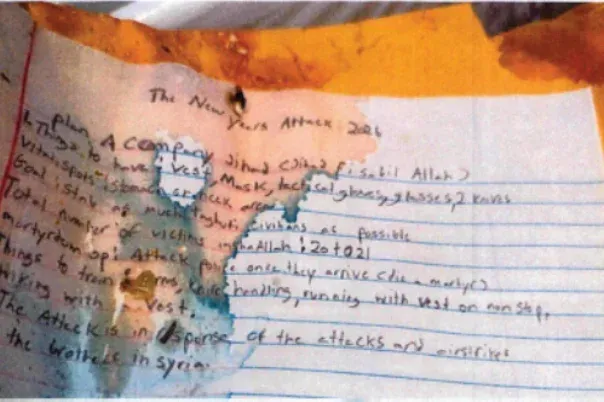 The New Years Attack 2026
Plan A Company Jihad (Jihad Fi sabil Allah)
Things to have: vest, Mask, tactical gloves, glasses, 2 knives
Vital spots: stomach or neck area
Goal: stab as much taghuti civilians as possible
Total number of victims inshaAllah: 20 to 21
martyrdom op: Attack police once they arrive (die a martyr)
Things to train: arms, knife handling, running with vest on non stop,
hiking with vest.
The Attack is in response of the attacks and airstrikes
the brothers in syria.